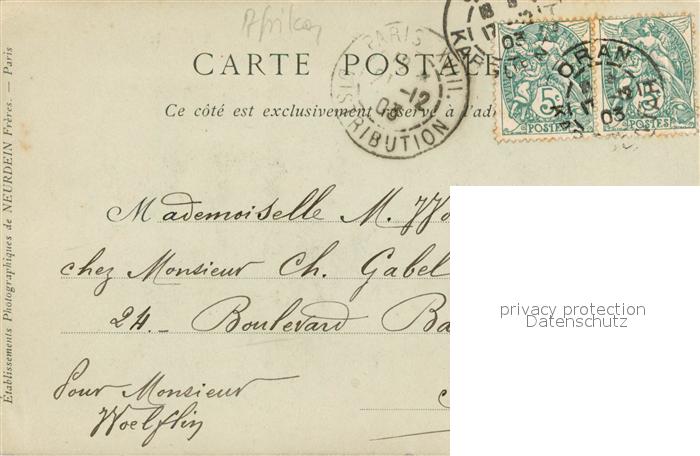 Afrika
CARTE POSTALE
Ce côté est exclusivement réservé à l'ad
PARIS XVIII.
12
03
DISTRIBUTION
17
03
ORAN
17
03
5c
POSTES
POSTES
Mademoiselle M. Wo
chez Monsieur Ch. Gabel
24.- Boulevard Ba
Pour Monsieur
Woelflin
privacy protection
Datenschutz
Établissements Photographiques de NEURDEIN Frères. — Paris